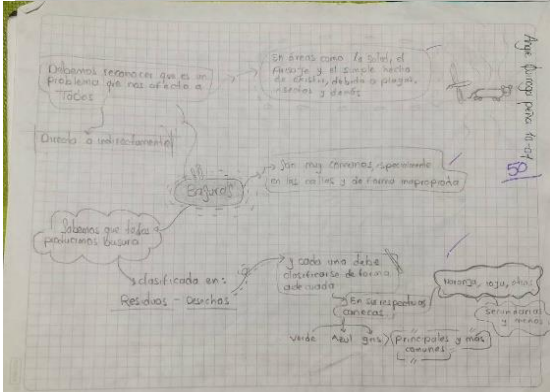 Debemos reconocer que es un
problema que nos afecta a
Todos
Directa o indirectamente
En áreas como la salud, el
paisaje y el simple hecho
de existir, debido a plagas,
insectos y demás
Angie Quiroga peña 10-07
50
Basuras
Son muy comunes, especialmente
en las calles y de forma inapropiada
Sabemos que todos
producimos basura
clasificada en:
Residuos - Desechos
y cada uno debe
clasificarse de forma
adecuada
En sus respectivas
canecas
Verde Azul gris
principales y más
comunes
naranja, rojo, otras
Secundarias
y menos